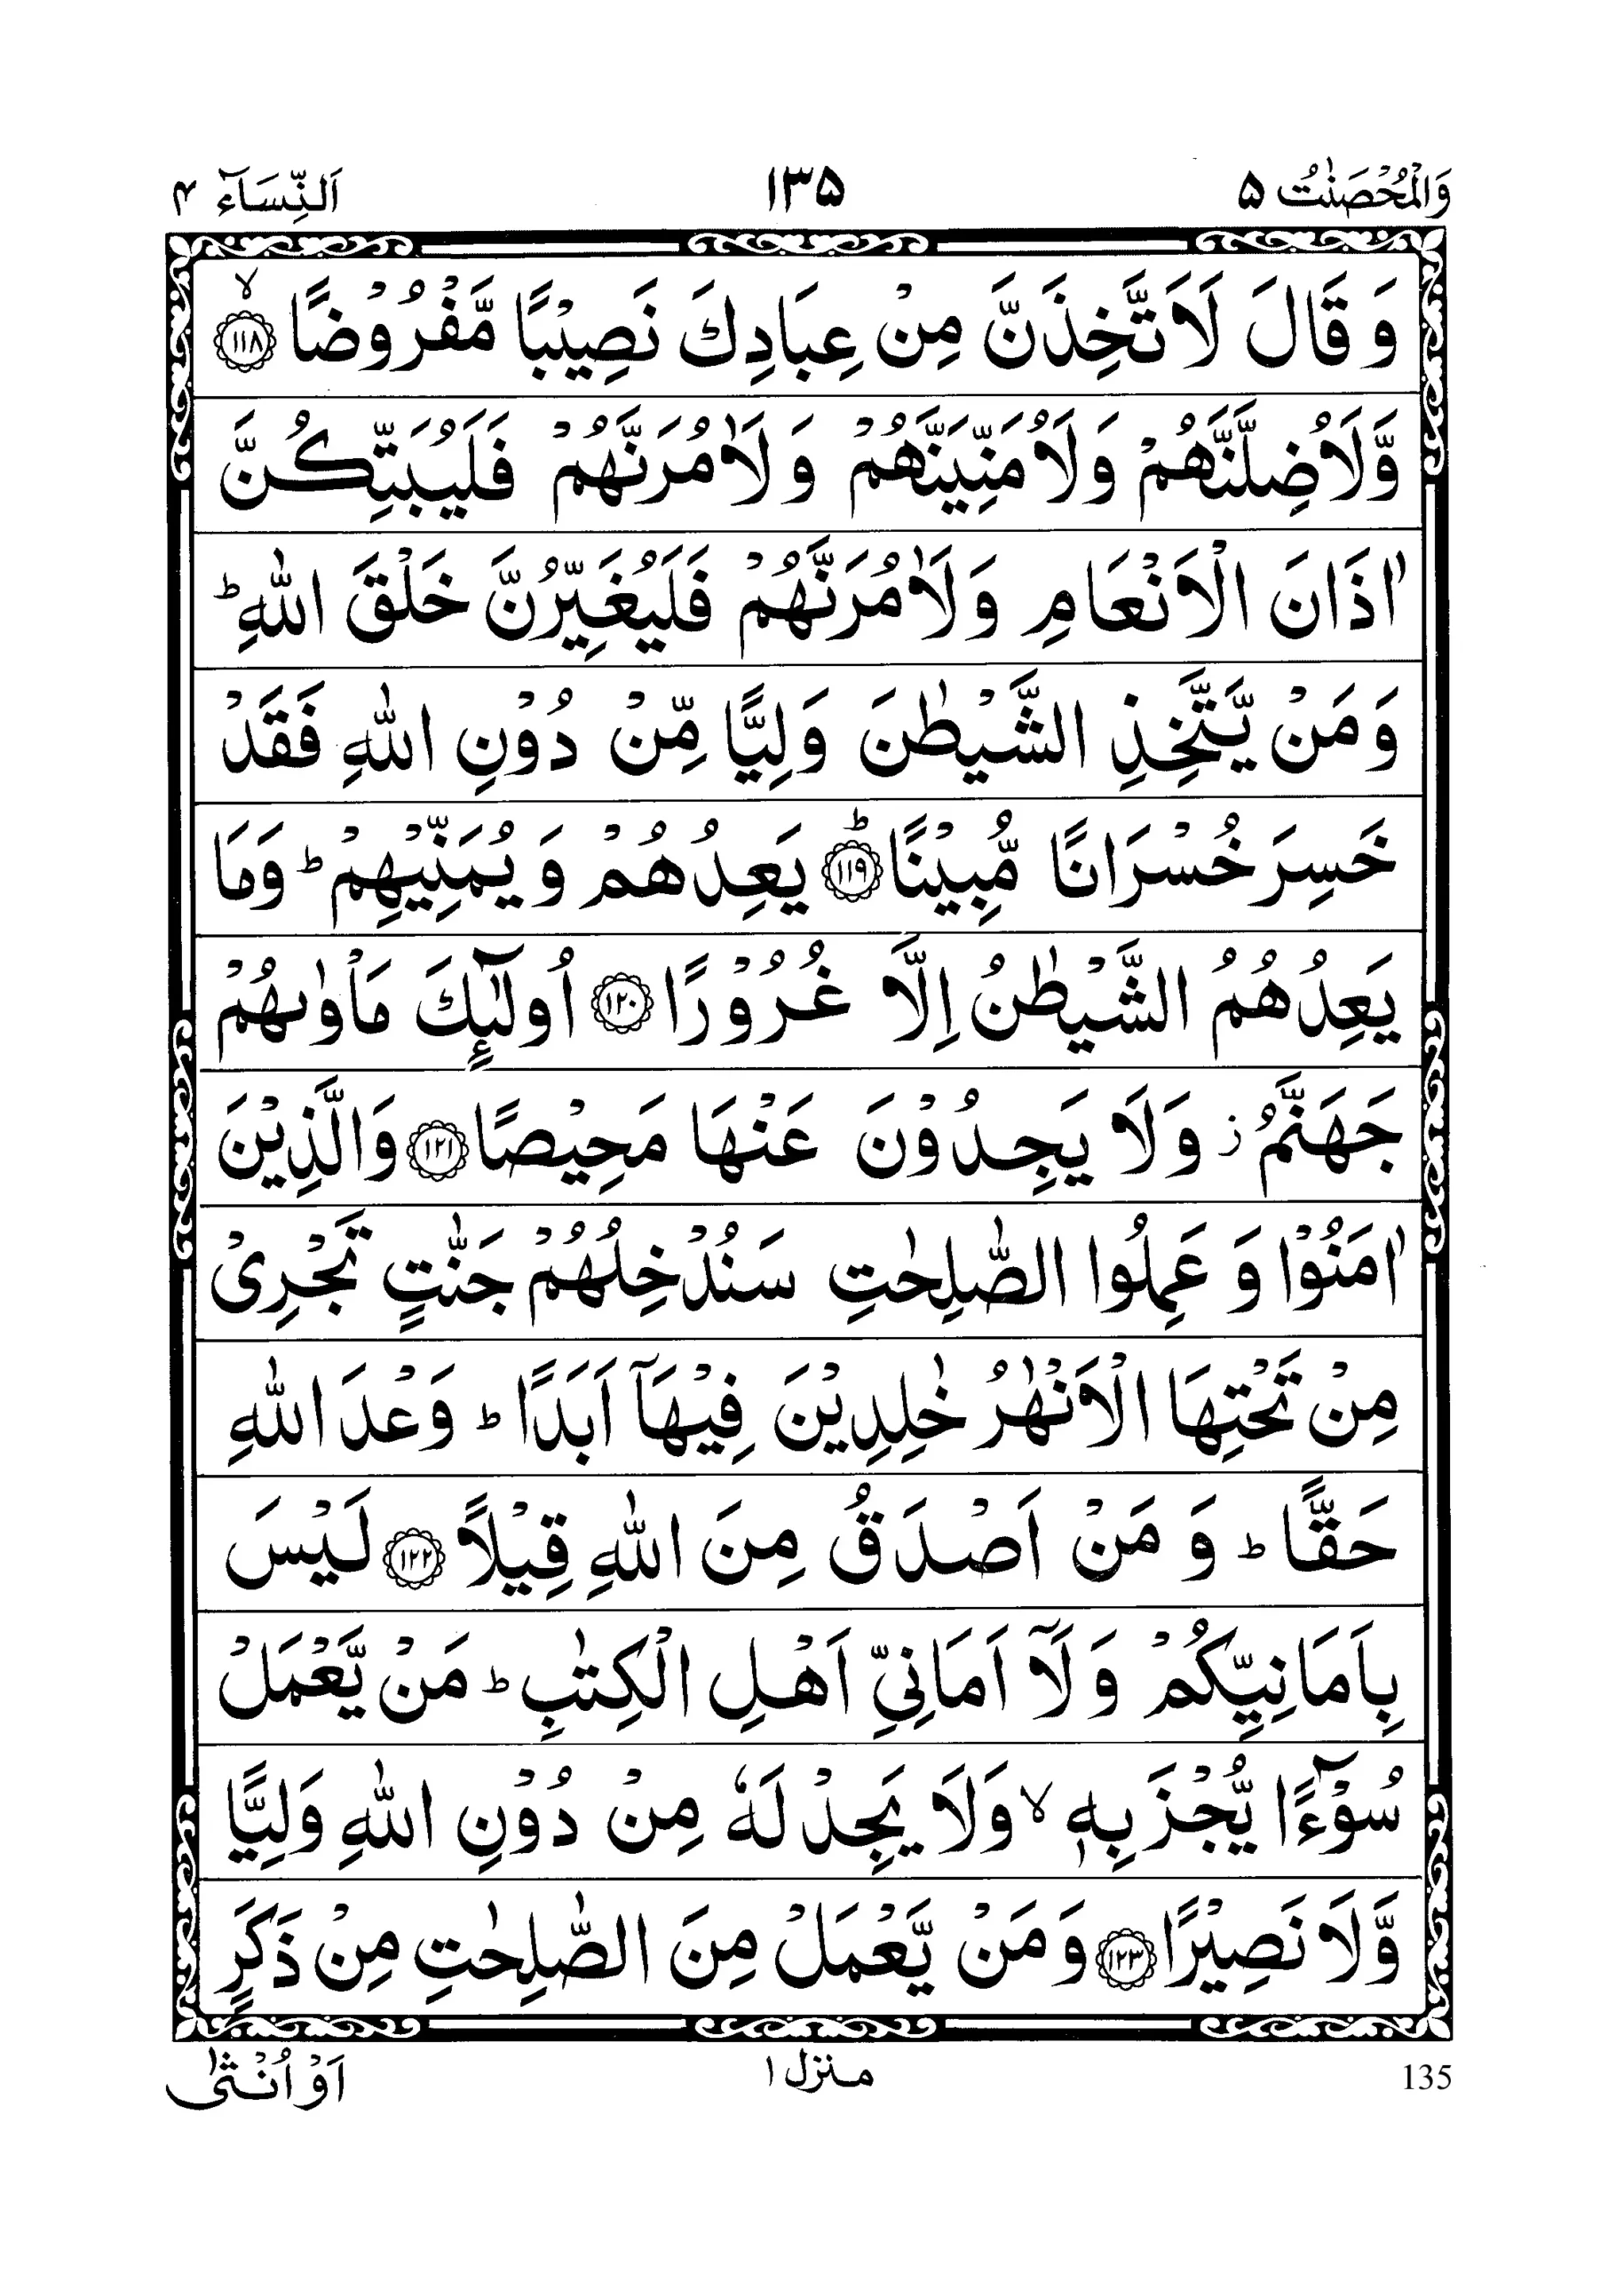 وَالْمُحْصَنٰتُ ۵ ۱۳۵ اَلنِّسَآء ۴
وَ قَالَ لَاَتَّخِذَنَّ مِنْ عِبَادِكَ نَصِيْبًا مَّفْرُوْضًا ۙ﴿۱۱۸﴾
وَّلَاُضِلَّنَّهُمْ وَلَاُمَنِّيَنَّهُمْ وَ لَاٰمُرَنَّهُمْ فَلَيُبَتِّكُنَّ
اٰذَانَ الْاَنْعَامِ وَلَاٰمُرَنَّهُمْ فَلَيُغَيِّرُنَّ خَلْقَ اللّٰهِ ؕ
وَمَنْ يَّتَّخِذِ الشَّيْطٰنَ وَلِيًّا مِّنْ دُوْنِ اللّٰهِ فَقَدْ
خَسِرَ خُسْرَانًا مُّبِيْنًا ؕ﴿۱۱۹﴾ يَعِدُهُمْ وَ يُمَنِّيْهِمْ ؕ وَمَا
يَعِدُهُمُ الشَّيْطٰنُ اِلَّا غُرُوْرًا ﴿۱۲۰﴾ اُولٰٓئِكَ مَاْوٰىهُمْ
جَهَنَّمُ ؗ وَلَا يَجِدُوْنَ عَنْهَا مَحِيْصًا ﴿۱۲۱﴾ وَالَّذِيْنَ
اٰمَنُوْا وَ عَمِلُوا الصّٰلِحٰتِ سَنُدْخِلُهُمْ جَنّٰتٍ تَجْرِىْ
مِنْ تَحْتِهَا الْاَنْهٰرُ خٰلِدِيْنَ فِيْهَاۤ اَبَدًا ؕ وَعْدَ اللّٰهِ
حَقًّا ؕ وَ مَنْ اَصْدَقُ مِنَ اللّٰهِ قِيْلًا ﴿۱۲۲﴾ لَيْسَ
بِاَمَانِيِّكُمْ وَ لَاۤ اَمَانِىِّ اَهْلِ الْكِتٰبِ ؕ مَنْ يَّعْمَلْ
سُوْٓءًا يُّجْزَ بِهٖ ۙ وَلَا يَجِدْ لَهٗ مِنْ دُوْنِ اللّٰهِ وَلِيًّا
وَّلَا نَصِيْرًا ﴿۱۲۳﴾ وَمَنْ يَّعْمَلْ مِنَ الصّٰلِحٰتِ مِنْ ذَكَرٍ
135 منزل ۱ اَوْ اُنْثٰى